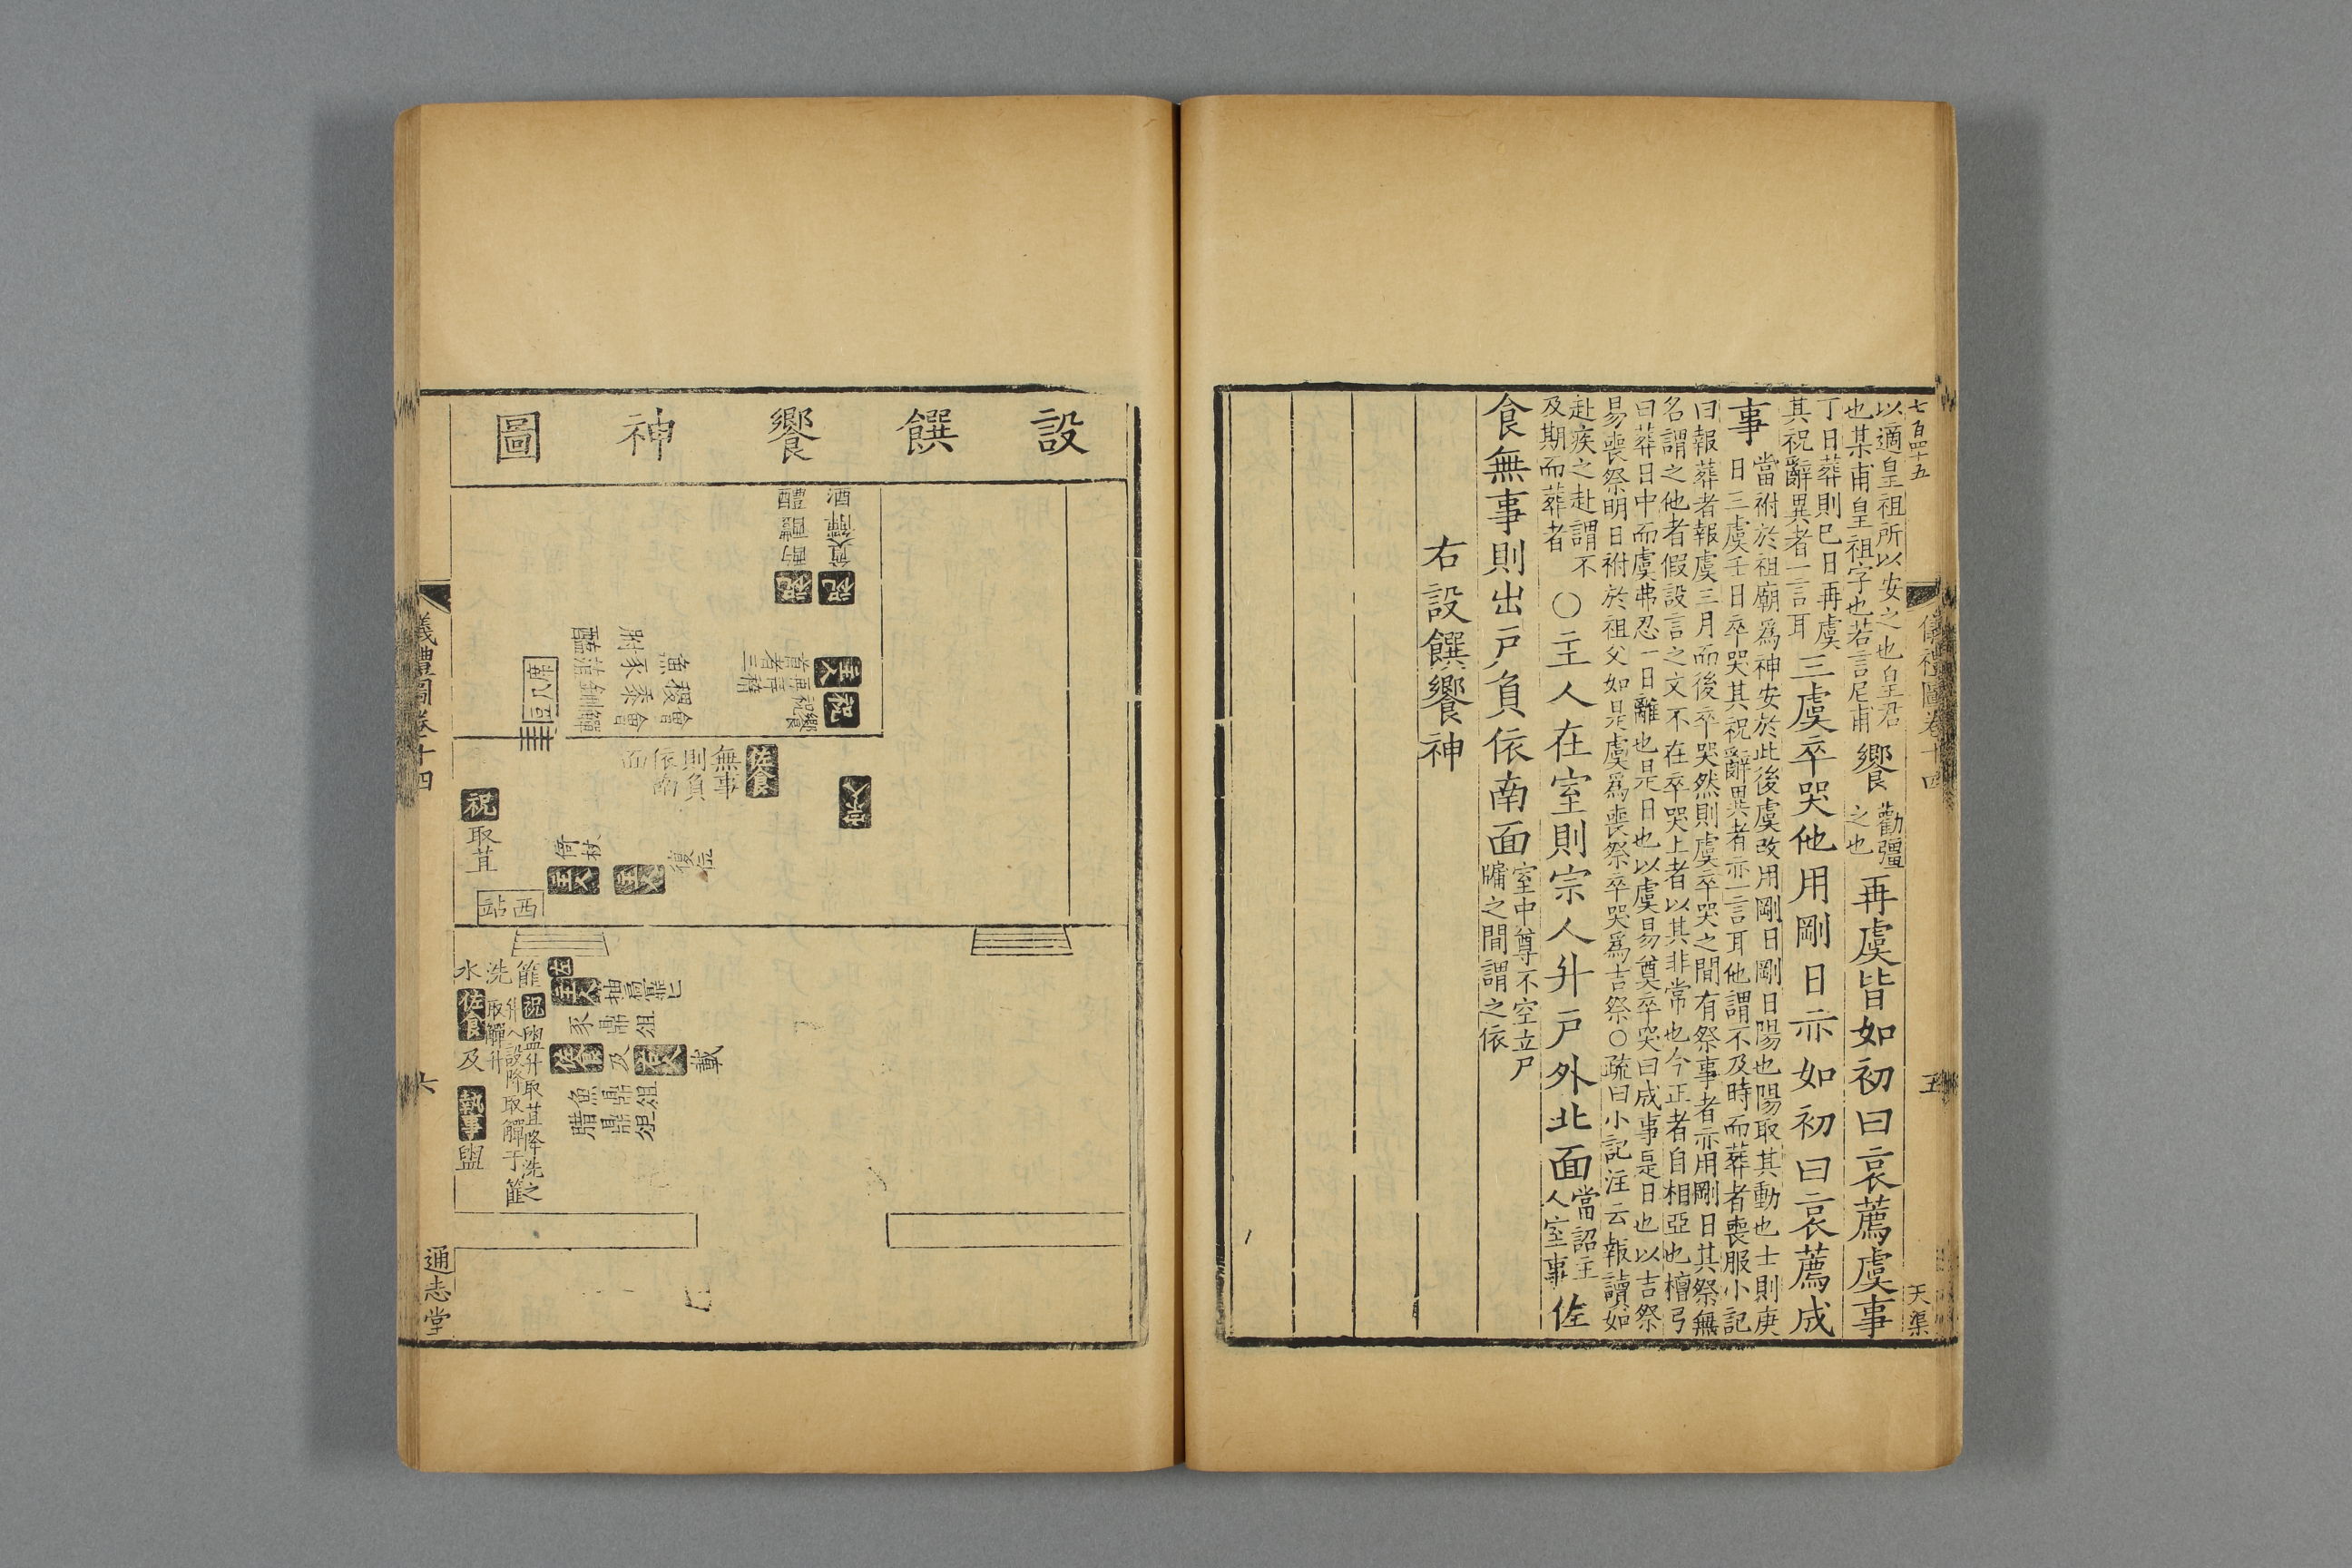 七百四十五
儀禮圖卷十四
五
天渠
以適皇祖所以安之也皇君
也某甫皇祖字也若言尼甫
饗
勸彊
之也
再虞皆如初曰哀薦虞事
丁日葬則巳日再虞
其祝辭異者一言耳
三虞卒哭他用剛日亦如初曰哀薦成
事
當祔於祖廟爲神安於此後虞改用剛日剛日陽也陽取其動也士則庚
日三虞壬日卒哭其祝辭異者亦一言耳他謂不及時而葬者喪服小記
曰報葬者報虞三月而後卒哭然則虞卒哭之間有祭事者亦用剛日其祭無
名謂之他者假設言之文不在卒哭上者以其非常也今正者自相亞也檀弓
曰葬日中而虞弗忍一日離也是日也以虞易奠卒哭曰成事是日也以吉祭
易喪祭明日祔於祖父如是虞爲喪祭卒哭爲吉祭○疏曰小記注云報讀如
赴疾之赴謂不
及期而葬者
○主人在室則宗人升戶外北面
當詔主
人室事
佐
食無事則出戶負依南面
室中尊不空立戶
牖之間謂之依
右設饌饗神
設饌饗神圖
祝
祝
主人
祝
祝饗
佐食
無事
則負
依南
面
宗人
席
几
魚稷會
豕黍會
祝
取苴
倚杖
主人
主人
復位
西坫
水
洗
篚
佐食
及
執事
盥
祝
盥升取苴降洗之
升入設降取觶于篚
取觶升
主人
抽扃
匕
豕鼎俎
佐食
及
載
魚鼎俎
腊鼎俎
儀禮圖卷十四
六
通志堂